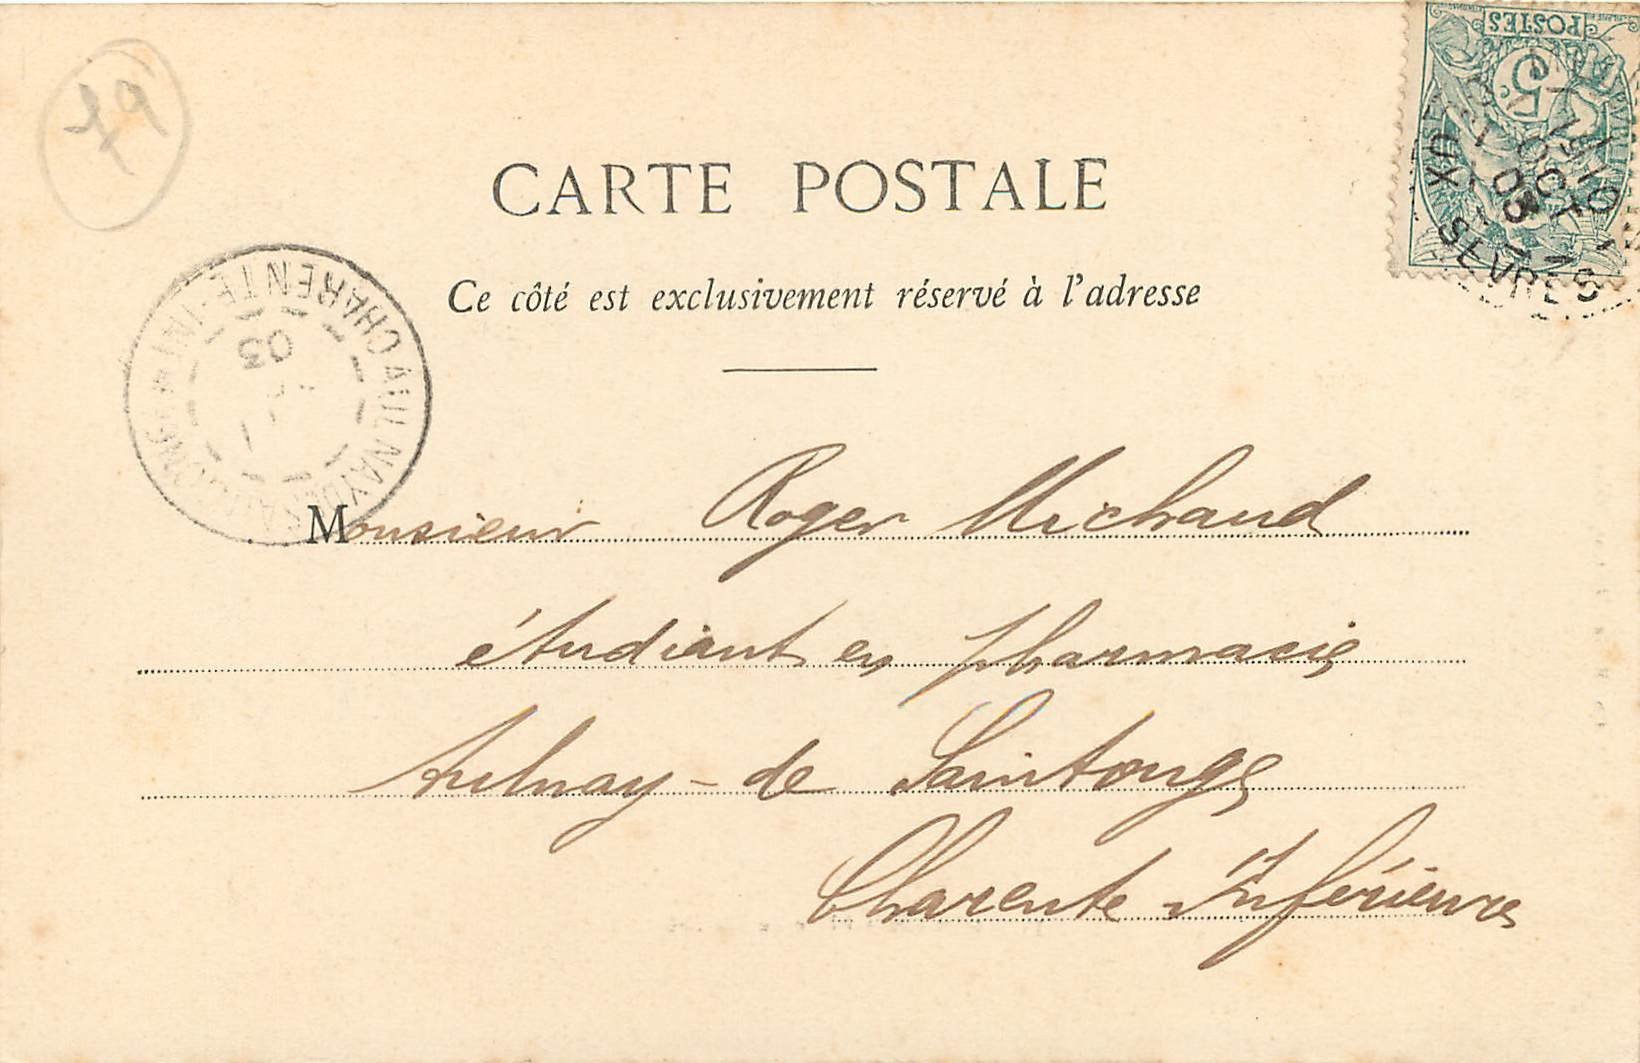 79
POSTES
5c
OCT
03
DEUX SEVRES
CARTE POSTALE
Ce côté est exclusivement réservé à l'adresse
AULNAY DE SAINTONGE
CHARENTE-INF
03
Monsieur Roger Michaud
étudiant en pharmacie
Aulnay-de Saintonge
Charente Inférieure